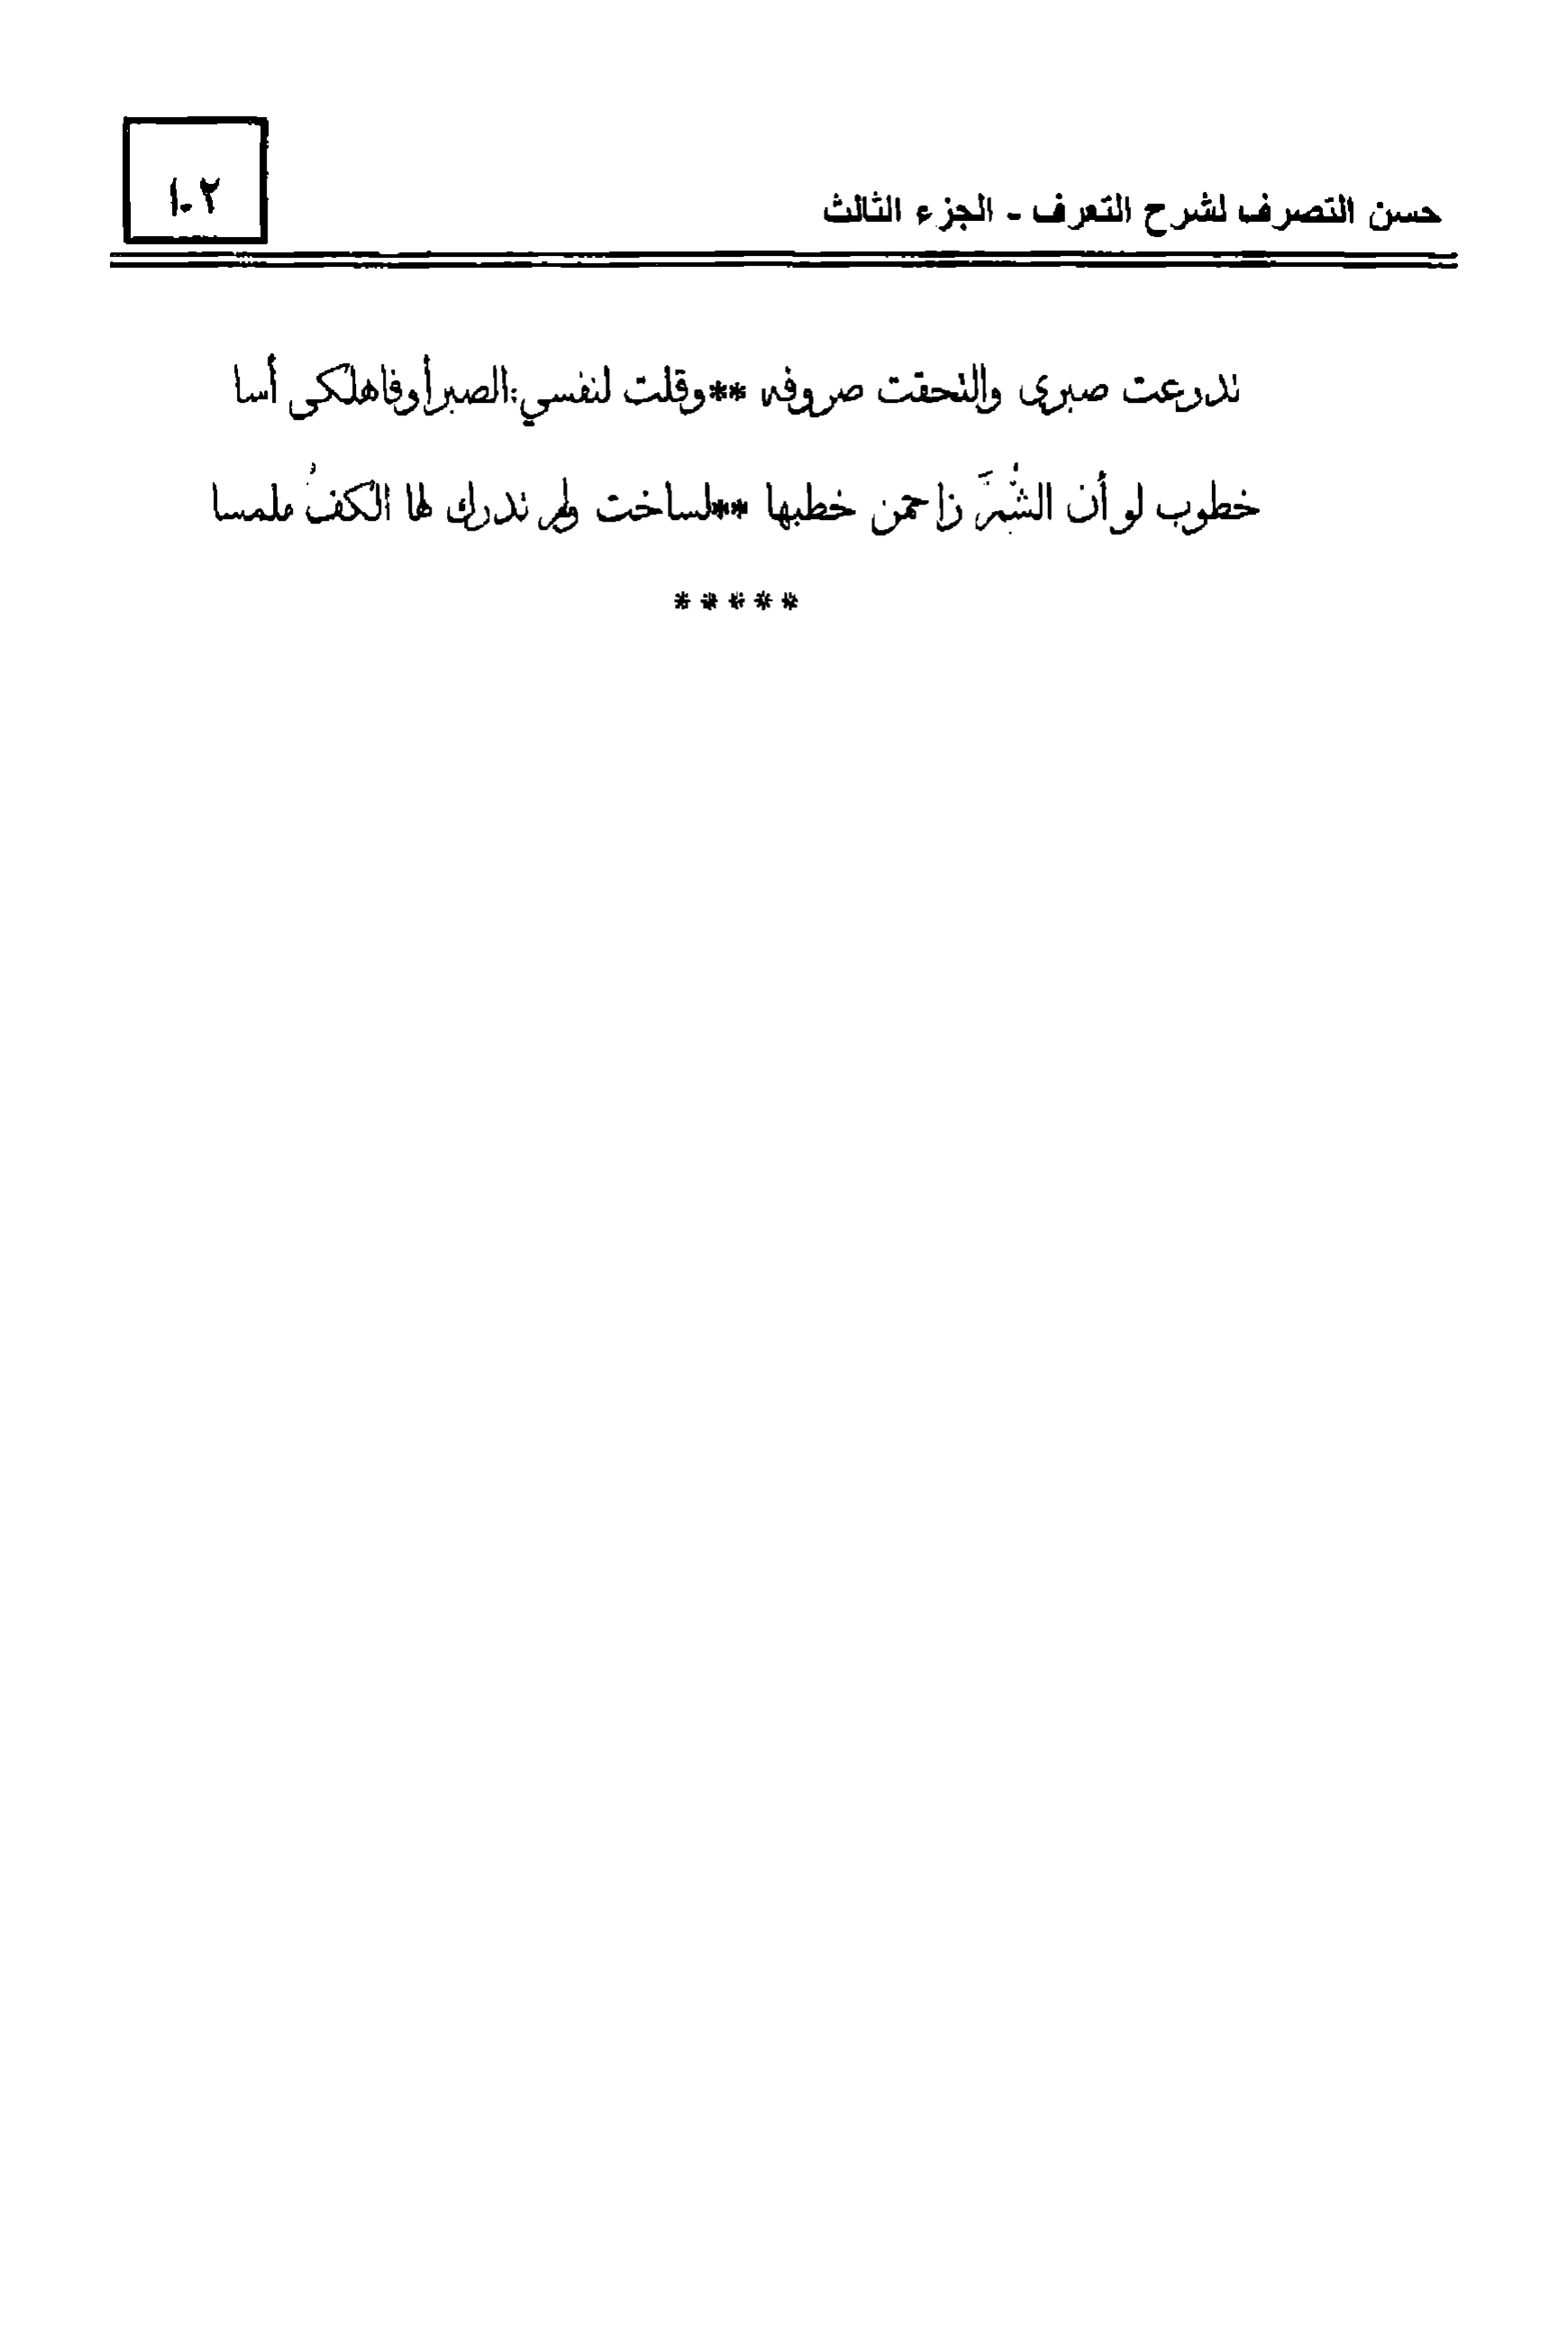 حسن التصرف لشرح التعرف - الجزء الثالث
١٠٢
تدرعت صبرى والتحقت صروفه **وقلت لنفسي:الصبرأوفاهلكى أسا
خطوب لو أن الشُّمَّ زاحمن خطبها **لساخت ولم تدرك لها الكفُ ملمسا
*****